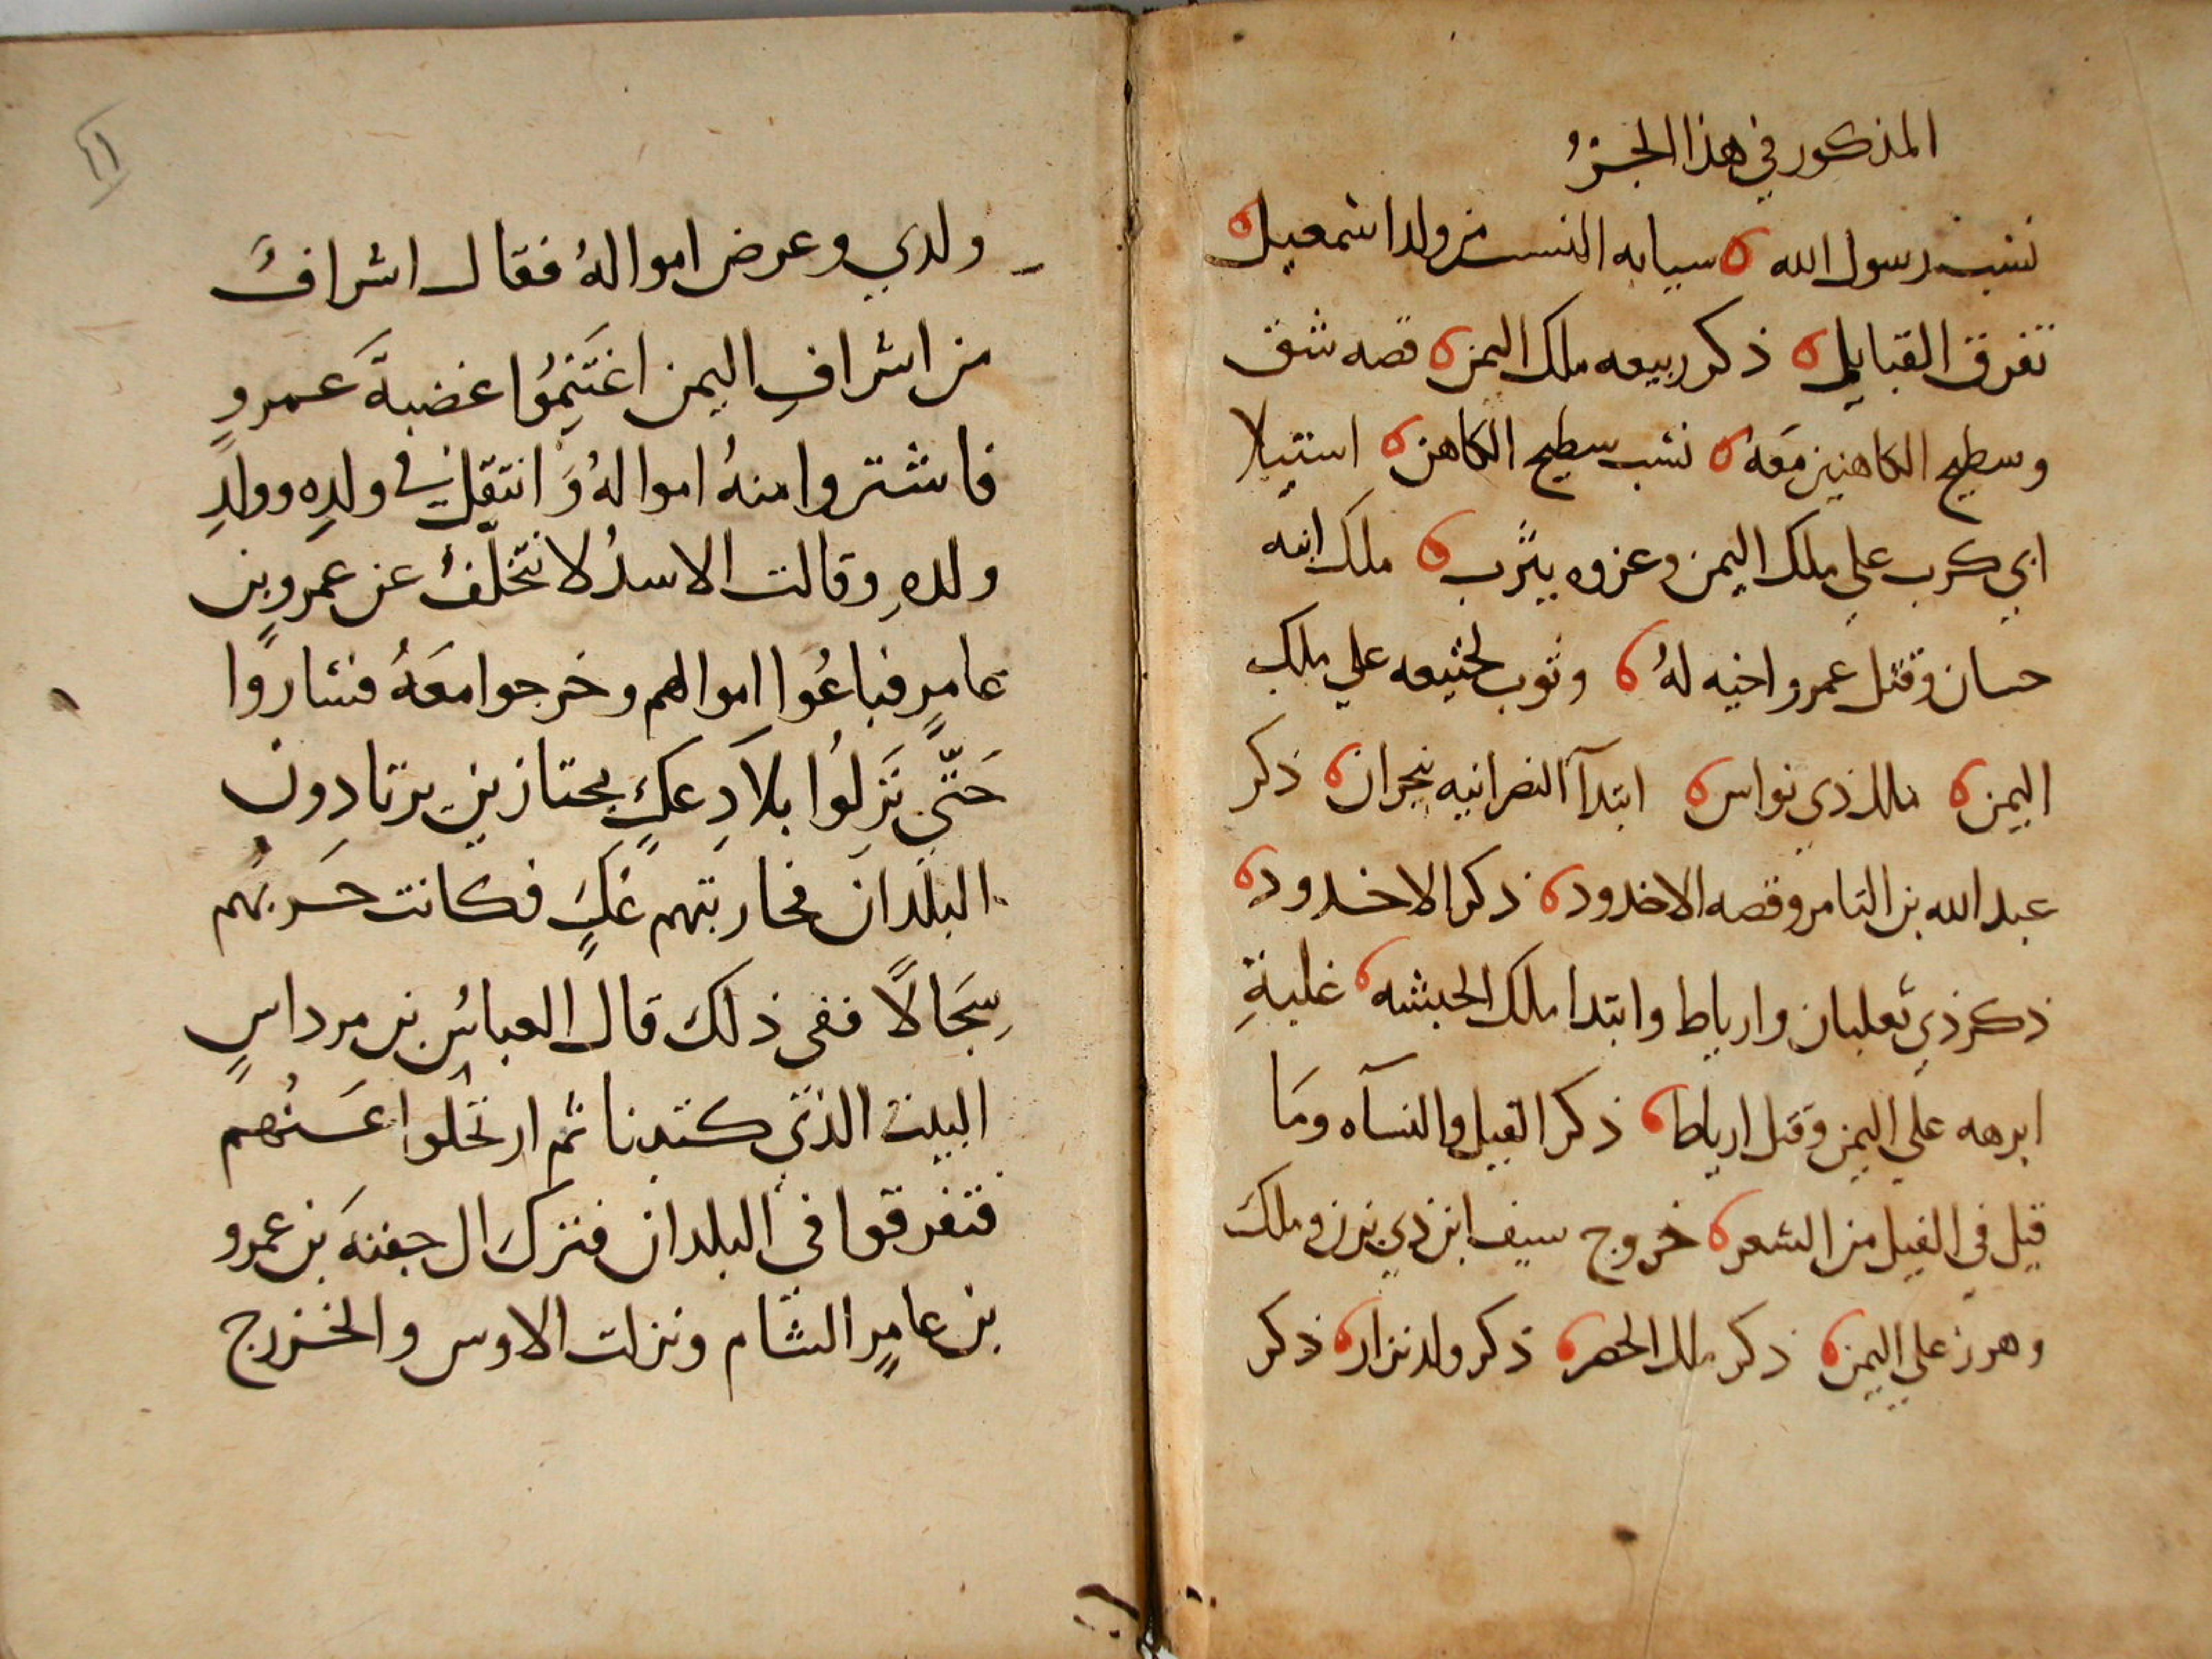 المذكور في هذا الجزء
نسب رسول الله ه سياقه النسب من ولد اسمعيل ه
تفرق القبايل ه ذكر ربيعه ملك اليمن ه قصه شق
وسطيح الكاهنين معه ه نسب سطيح الكاهن ه استيلا
ابي كرب علي ملك اليمن وغزوه يثرب ه ملك ابنه
حسان وقتل عمرو اخيه لهُ ه وثوب لخنيعه علي ملك
اليمن ه ملك ذي نواس ه ابتدآ النصرانيه بنجران ه ذكر
عبد الله بن التامر وقصه الاخدود ه ذكر الاخدود ه
ذكر ذي ثعلبان وارياط وابتدا ملك الحبشه ه غلبةِ
ابرهه علي اليمن وقتل ارياط ه ذكر الفيل والنسآه ومَا
قيل في الفيل من الشعر ه خروج سيف ابن ذي يزن وملك
وهرز علي اليمن ه ذكر ملك الحضر ه ذكر ولد نزار ه ذكر
٤١
ولدي وعرض اموالهُ فقال اشرافٌ
من اشرافِ اليمن اغتَنِمُوا غضبةَ عمروٍ
فاشتروا منهُ اموالهُ وَانتقل في ولدِه وولدِ
ولدهِ وقالت الاسدُ لا نتخلّفُ عن عمرو بن
عامرٍ فباعُوا اموالهم وخرجوا معَهُ فساروا
حَتّي نَزلُوا بلادِ عكٍ مجتازين يرتادون
البلدانَ فحاربتهم عَكٍ فكانت حَربُهم
سِجَالاً ففي ذلك قال العباسُ بن مرداسٍ
البيت الذي كتبنا ثم ارتحلوا عَنهُم
فتفرقوا في البلدان فنزل ال جفنهَ بن عمرو
بن عامرٍ الشام ونزلت الاوس والخزرج